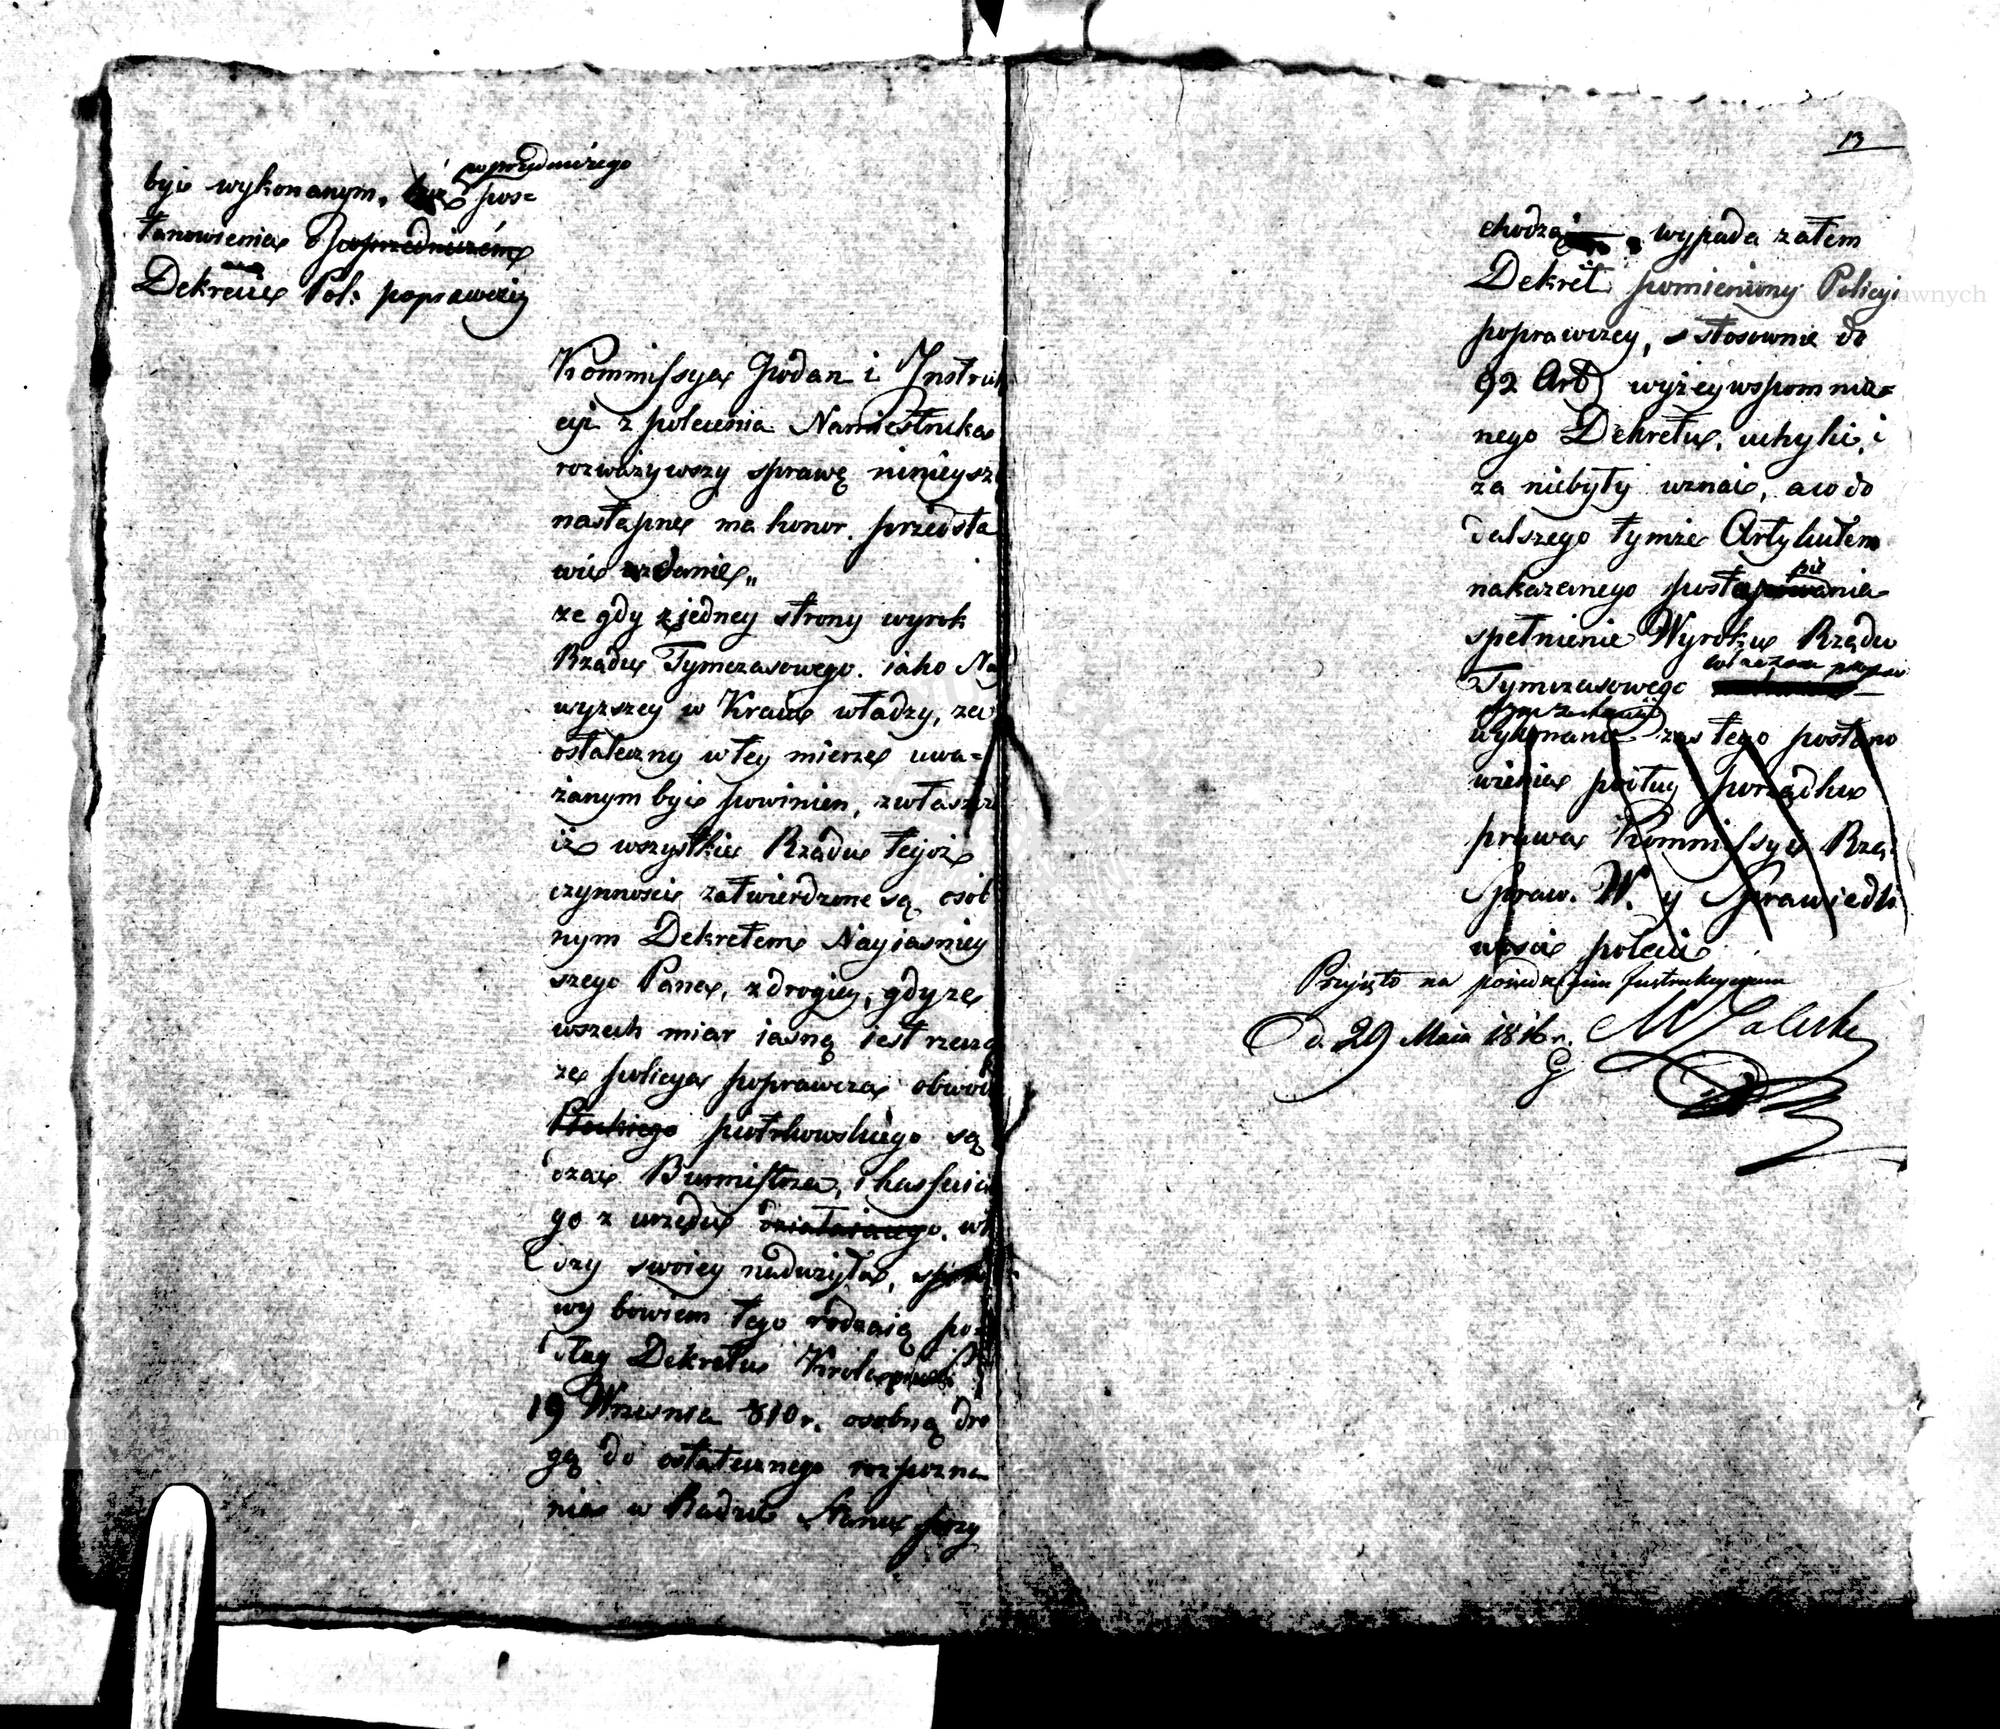 być wykonanym, poprzedniczego pos=
tanowienia poprzedniczém
Dekrecie Pol: poprawczey
Kommissya Podan i Instruk
cyi z polecenia Namiestnika
rozważywszy sprawę ninieysz
następne ma honor przedsta
wić zdanie„
że gdy z jedney strony wyrok
Rządu Tymczasowego iako Nay
wyższey w Kraiu władzy, za
ostateczny w tey mierze uwa=
żanym być powinien, zwłaszcza
iż wszystkie Rządu tegoż
czynnoscie zatwierdzone są osób
nym Dekretem Nayiasniey
szego Pana, z drogiey, gdy ze
wszech miar iasną iest rzeczą
że policya poprawcza obwodu
Płockiego piotrkowskiego są
dząc Burmistrza, i kassuią
go z urzędu działaiącego, wł
dzy swoiey nadużyła, spra
wy bowiem tego rodzaią po=
dług Dekretu Królewski
19 Wrzesnia 810 r. osobną dro
gą do ostatecznego rozpozna
nia w Radzie Stanu przy
13
chodzą wypada zatem
Dekret pomieniony Policyi
poprawczey, stosownie do
92 Art wyżey wspomnia=
nego Dekretu, uchylić, i
za niebyły uznać, a co do
dalszego tymże Artykułem
nakazanego postępowania
spełnienie Wyroku Rządu
Tymczasowego
wykonanie zas tego postano
wienia podług porządku
prawa Kommissyi Rzą:
Spraw. W. y Sprawiedli
wosci poleca
Przyięto na posiedzeniu Instrukcyynem
d. 29 Maia 1816 r.